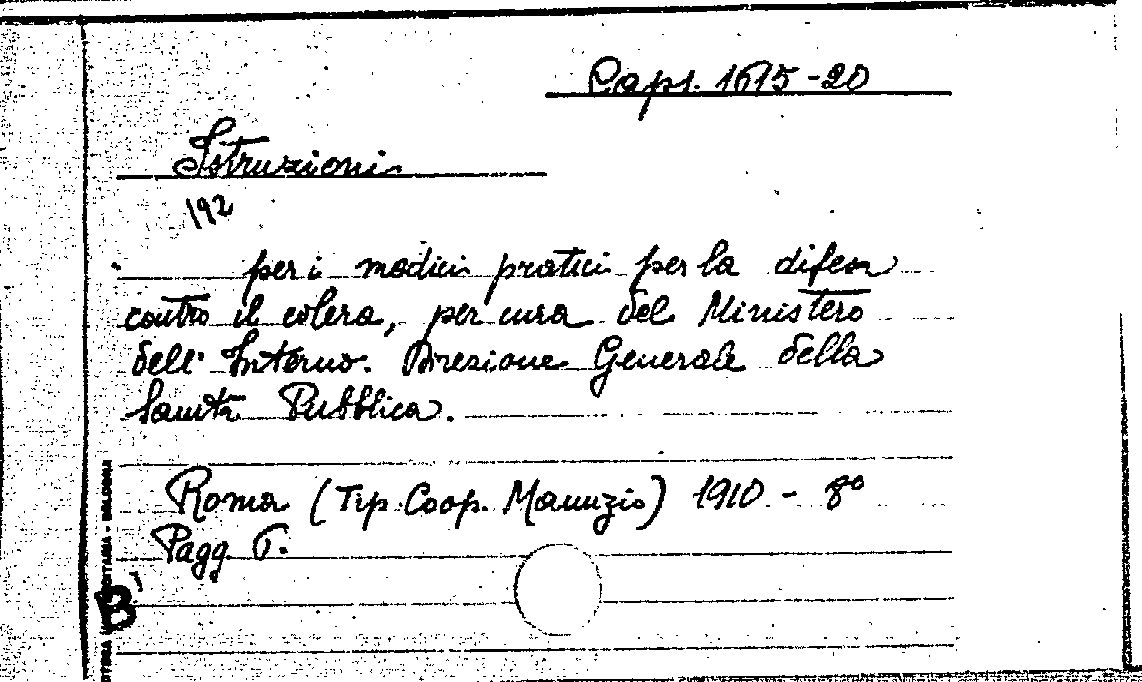 Caps. 1615-20
Istruzioni
192
per i medici pratici per la difesa
contro il colera, per cura del Ministero
dell' Interno. Direzione Generale della
Sanità Pubblica.
Roma (Tip. Coop. Manuzio) 1910 - 8º
Pagg. 6.
B